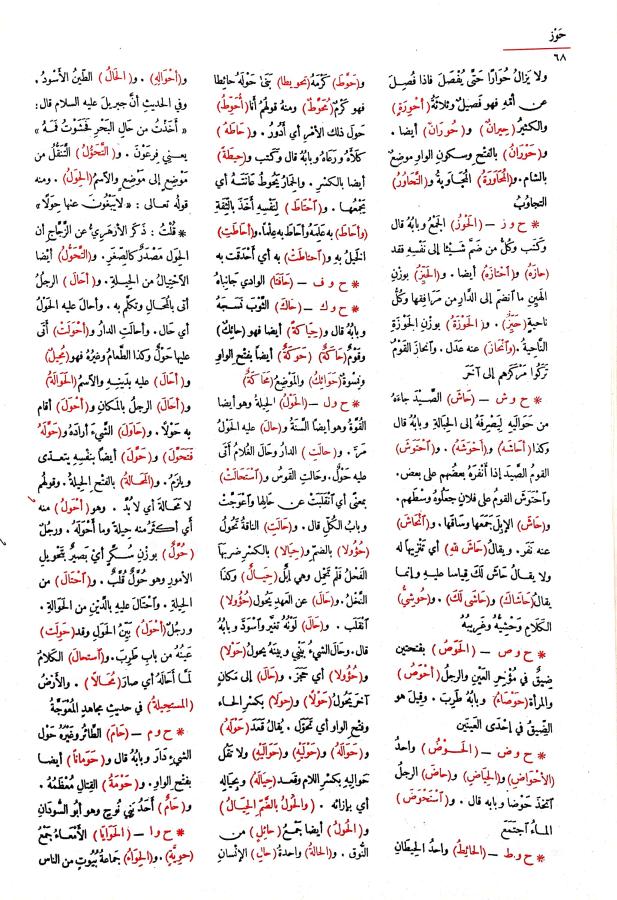 حَوْز
٦٨
ولا يَزالُ حُوَارًا حَتَّى يُفْصَلَ فاذا فُصِلَ
عن أُمِّهِ فهو فَصِيلٌ وثلاثَةُ (أحْوِرَةٍ)
والكثيرُ (حِيرانٌ) و(حُورَانٌ) أيضا.
و(حَوْرَانُ) بالفَتْحِ وسكونِ الواوِ مَوضِعٌ
بالشام. و(المُحَاوَرَةُ) المُجَاوَبَةُ و(التَّحَاوُرُ)
التجاوُبُ
* ح و ز – (الحَوْزُ) الجَمْعُ وبابُهُ قالَ
وكَتَبَ وكُلُّ من ضَمَّ شَيْئًا إلى نَفْسِهِ فقد
(حازَهُ) و(احْتازَهُ) أيضا. و(الحَيِّزُ) بوزنِ
الهَيِّنِ ما انْضَمَّ إلى الدَّارِ من مَرَافِقِها وكُلُّ
ناحِيةٍ (حَيِّزٌ). و(الحَوْزَةُ) بوزن الجَوْزَةِ
النَّاحِيَةُ. و(انْحازَ) عنه عَدَل. وانحازَ القومُ
تَرَكُوا مَرْكَزَهم إلى آخَرَ
* ح و ش – (حَاشَ) الصَّيْدَ جاءَهُ
من حَوَالَيْهِ لِيَصْرِفَهُ إلى الحِبَالَةِ وبابُهُ قالَ
وكذا (أحَاشَهُ) و(أحْوَشَهُ). و(احْتَوَشَ)
القومُ الصَّيدَ إذا أنْفَرَهُ بعضُهم على بعضٍ.
واحْتَوَشَ القومُ على فلانٍ جَعَلوهُ وسْطَهم.
و(حَاشَ) الإبِلَ جَمَعَها وساقَها. و(انْحَاشَ)
عنه نَفَر. ويقالُ (حَاشَ للهِ) أي تَنْزِيهًا له
ولا يقالُ حَاشَ لَكَ قِياسا عليهِ وإنما
يقالُ (حَاشَاكَ) و(حاشَى لَكَ). و(حُوشِيُّ)
الكَلامِ وَحْشِيُّهُ وغَرِيبُهُ
* ح و ص – (الحَوَصُ) بفَتْحتينِ
ضِيقٌ في مُؤْخِرِ العَيْنِ والرجُلُ (أحْوَصُ)
والمرأةُ (حَوْصَاءُ) وبابُهُ طَرِبَ. وقيلَ هو
الضِّيقُ في إحْدَى العَينَينِ
* ح و ض – (الحَوْضُ) واحدُ
(الأحْوَاضِ) و(الحِيَاضِ) و(حاضَ) الرجلُ
اتَّخذَ حَوْضا وبابُه قال. و(استَحْوَضَ)
الماءُ اجتَمَعَ
* ح و ط – (الحائِطُ) واحدُ الحِيطانِ
و(حَوَّطَ) كَرْمَهُ (تحويطا) بَنَى حَوْلَهُ حائِطا
فهو كَرْمٌ (مُحَوَّطٌ). ومنهُ قولُهُمْ أنا (أُحَوِّطُ)
حَولَ ذلك الأمْرِ أي أَدُورُ. و(حَاطَهُ)
كَلَأَهُ ورعَاهُ وبابُهُ قال وكَتَب و(حِيطَةً)
أيضا بالكَسْرِ. والحِمارُ يَحُوطُ عانَتَهُ أي
يَجْمَعُها. و(احْتاطَ) لِنَفْسِهِ أخَذَ بالثِّقَةِ
و(أحاطَ) به عِلْمُهُ وأحاطَ به عِلْمًا. و(أحَاطَتِ)
الخيلُ به و(احتاطَتْ) به أي أَحْدَقَت به
* ح و ف – (حَافَتا) الوادي جانِباهُ
* ح و ك – (حَاكَ) الثَّوبَ نَسَجَهُ
وبابُهُ قال و(حِيَاكَةً) أيضا فهو (حائكٌ)
وقومٌ (حَاكَةٌ) و(حَوَكَةٌ) أيضا بفتح الواوِ
ونِسوةٌ (حَوَائِكُ) والموضِعُ (مَحَاكَةٌ)
* ح و ل – (الحَوْلُ) الحِيلَةُ وهو أيضا
القُوَّةُ وهو أيضا السَّنَةُ و(حَالَ) عليه الحَوْلُ
مَرَّ. و(حالَتِ) الدارُ وحَالَ الغُلامُ أتَى
عليه حَوْلٌ. وحالَتِ القَوسُ و(استَحَالَتْ)
بمعنَى أي انْقَلَبَتْ عن حَالِها واعْوَجَّتْ
وبابُ الكُلِّ قال. و(حَالَتِ) الناقةُ تَحُولُ
(حُؤُولا) بالضم و(حِيالا) بالكسر ضَرَبَها
الفَحْلُ فلم تَحْمِلْ وهي إبِلٌ (حِيَالٌ) وكذا
النَّخْلُ. و(حَالَ) عن العَهْدِ يَحُول (حُؤُولا)
انْقَلَبَ. و(حَالَ) لَوْنُهُ تَغَيَّرَ واسْوَدَّ وبابُهُ
قال. وحَالَ الشيءُ بَيْني وبينَهُ يَحُولُ (حَوْلا)
و(حُؤُولا) أي حَجَزَ. و(حَالَ) إلى مَكانٍ
آخرَ يَحُولُ (حَوْلًا) و(حِوَلًا) بكسرِ الحاءِ
وفتحِ الواوِ أي تَحَوَّل. يقالُ قَعَدَ (حَوْلَهُ)
و(حَوَالَهُ) و(حَوْلَيْهِ) و(حَوَالَيْهِ) ولا تَقُلْ
حَوَالِيهِ بكسْرِ اللام وقَعَد (حِيَالَهُ) وبحِيَالِهِ
أي بإزائه. و(الحُولُ بالضَّمِّ الحِيَالُ)
و(الحُولُ) أيضا جمْعُ (حَائِلٍ) من
النُّوق. و(الحالةُ) واحدةُ (حالِ) الإنسانِ
و(أحْوَالِهِ). و(الحَالُ) الطِّينُ الأسْودُ.
وفي الحديثِ أنَّ جِبْريلَ عليه السلام قال:
« أخَذْتُ من حَالِ البَحْرِ فَحَشَوْتُ فَمَهُ »
يعني فِرعَوْنَ. و(التَّحَوُّلُ) التَّنَقُّلُ من
مَوْضِعٍ إلى مَوْضِعٍ والاسمُ (الحِوَلُ). ومنه
قولُه تعالى : « لا يَبْغُونَ عنها حِوَلًا »
* قُلْتُ : ذَكَرَ الأزهرِيُّ عن الزَّجَّاجِ أن
الحِوَلَ مَصْدَرٌ كالصِّغَرِ. و(التَّحَوُّلُ) أيضا
الاحْتِيالُ من الحِيلَةِ. و(أحَالَ) الرجلُ
أتى بالمُحَالِ وتكلَّم به. وأحالَ عليه الحَوْلُ
أي حَالَ. وأحالَتِ الدارُ و(أحْوَلَتْ) أتَى
عليها حَوْلٌ وكذا الطعامُ وغيرُهُ فهو (مُحِيلٌ)
و(أحَالَ) عليه بدَيْنِهِ والاسمُ (الحَوَالَةُ)
و(أحَالَ) الرجلُ بالمكانِ و(أحْوَلَ) أقام
به حَوْلًا. و(حَاوَلَ) الشيءَ أرادَهُ و(حَوَّلَهُ
فتَحَوَّلَ) و(حَوَّلَ) أيضا بنفْسِهِ يتعدَّى
ويلزَمُ. و(المَحَالَةُ) بالفتحِ الحِيلَةُ. وقولُهم
لا مَحَالَةَ أي لا بُدَّ. وهو (أحْوَلُ) منه
أي أكثرُ منه حِيلةً وما أحْوَلَهُ. ورجُلٌ
(حُوَّلٌ) بوزنِ سُكَّرٍ أي بَصِيرٌ بتَحْوِيلِ
الأمورِ وهو حُوَّلٌ قُلَّبٌ. و(احْتَالَ) من
الحِيلةِ. واحْتَالَ عليه بالدَّينِ من الحَوَالةِ.
ورجُلٌ (أحْوَلُ) بَيِّنُ الحَوَلِ وقد (حَوِلَتْ)
عَيْنُهُ من بابِ طَرِبَ. و(استحالَ) الكلامُ
لَمَّا أحَالَهُ أي صارَ (مُحَالًا). والأرضُ
(المستَحيلةُ) في حديث مجاهدٍ المُعْوَجَّةُ
* ح و م – (حَامَ) الطائرُ وغيرُهُ حَوْلَ
الشيءِ دَارَ وبابُهُ قال و(حَوَمانًا) أيضا
بفتح الواو. و(حَوْمَةُ) القِتالِ مُعْظَمُهُ.
و(حَامٌ) أحَدُ بَنِي نُوحٍ وهو أبُو السُّودَانِ
* ح و ا – (الحَوَايَا) الأمْعَاءُ جَمْعُ
(حَوِيَّةٍ). و(الحِوَاءُ) جَماعَةُ بُيُوتٍ من الناس